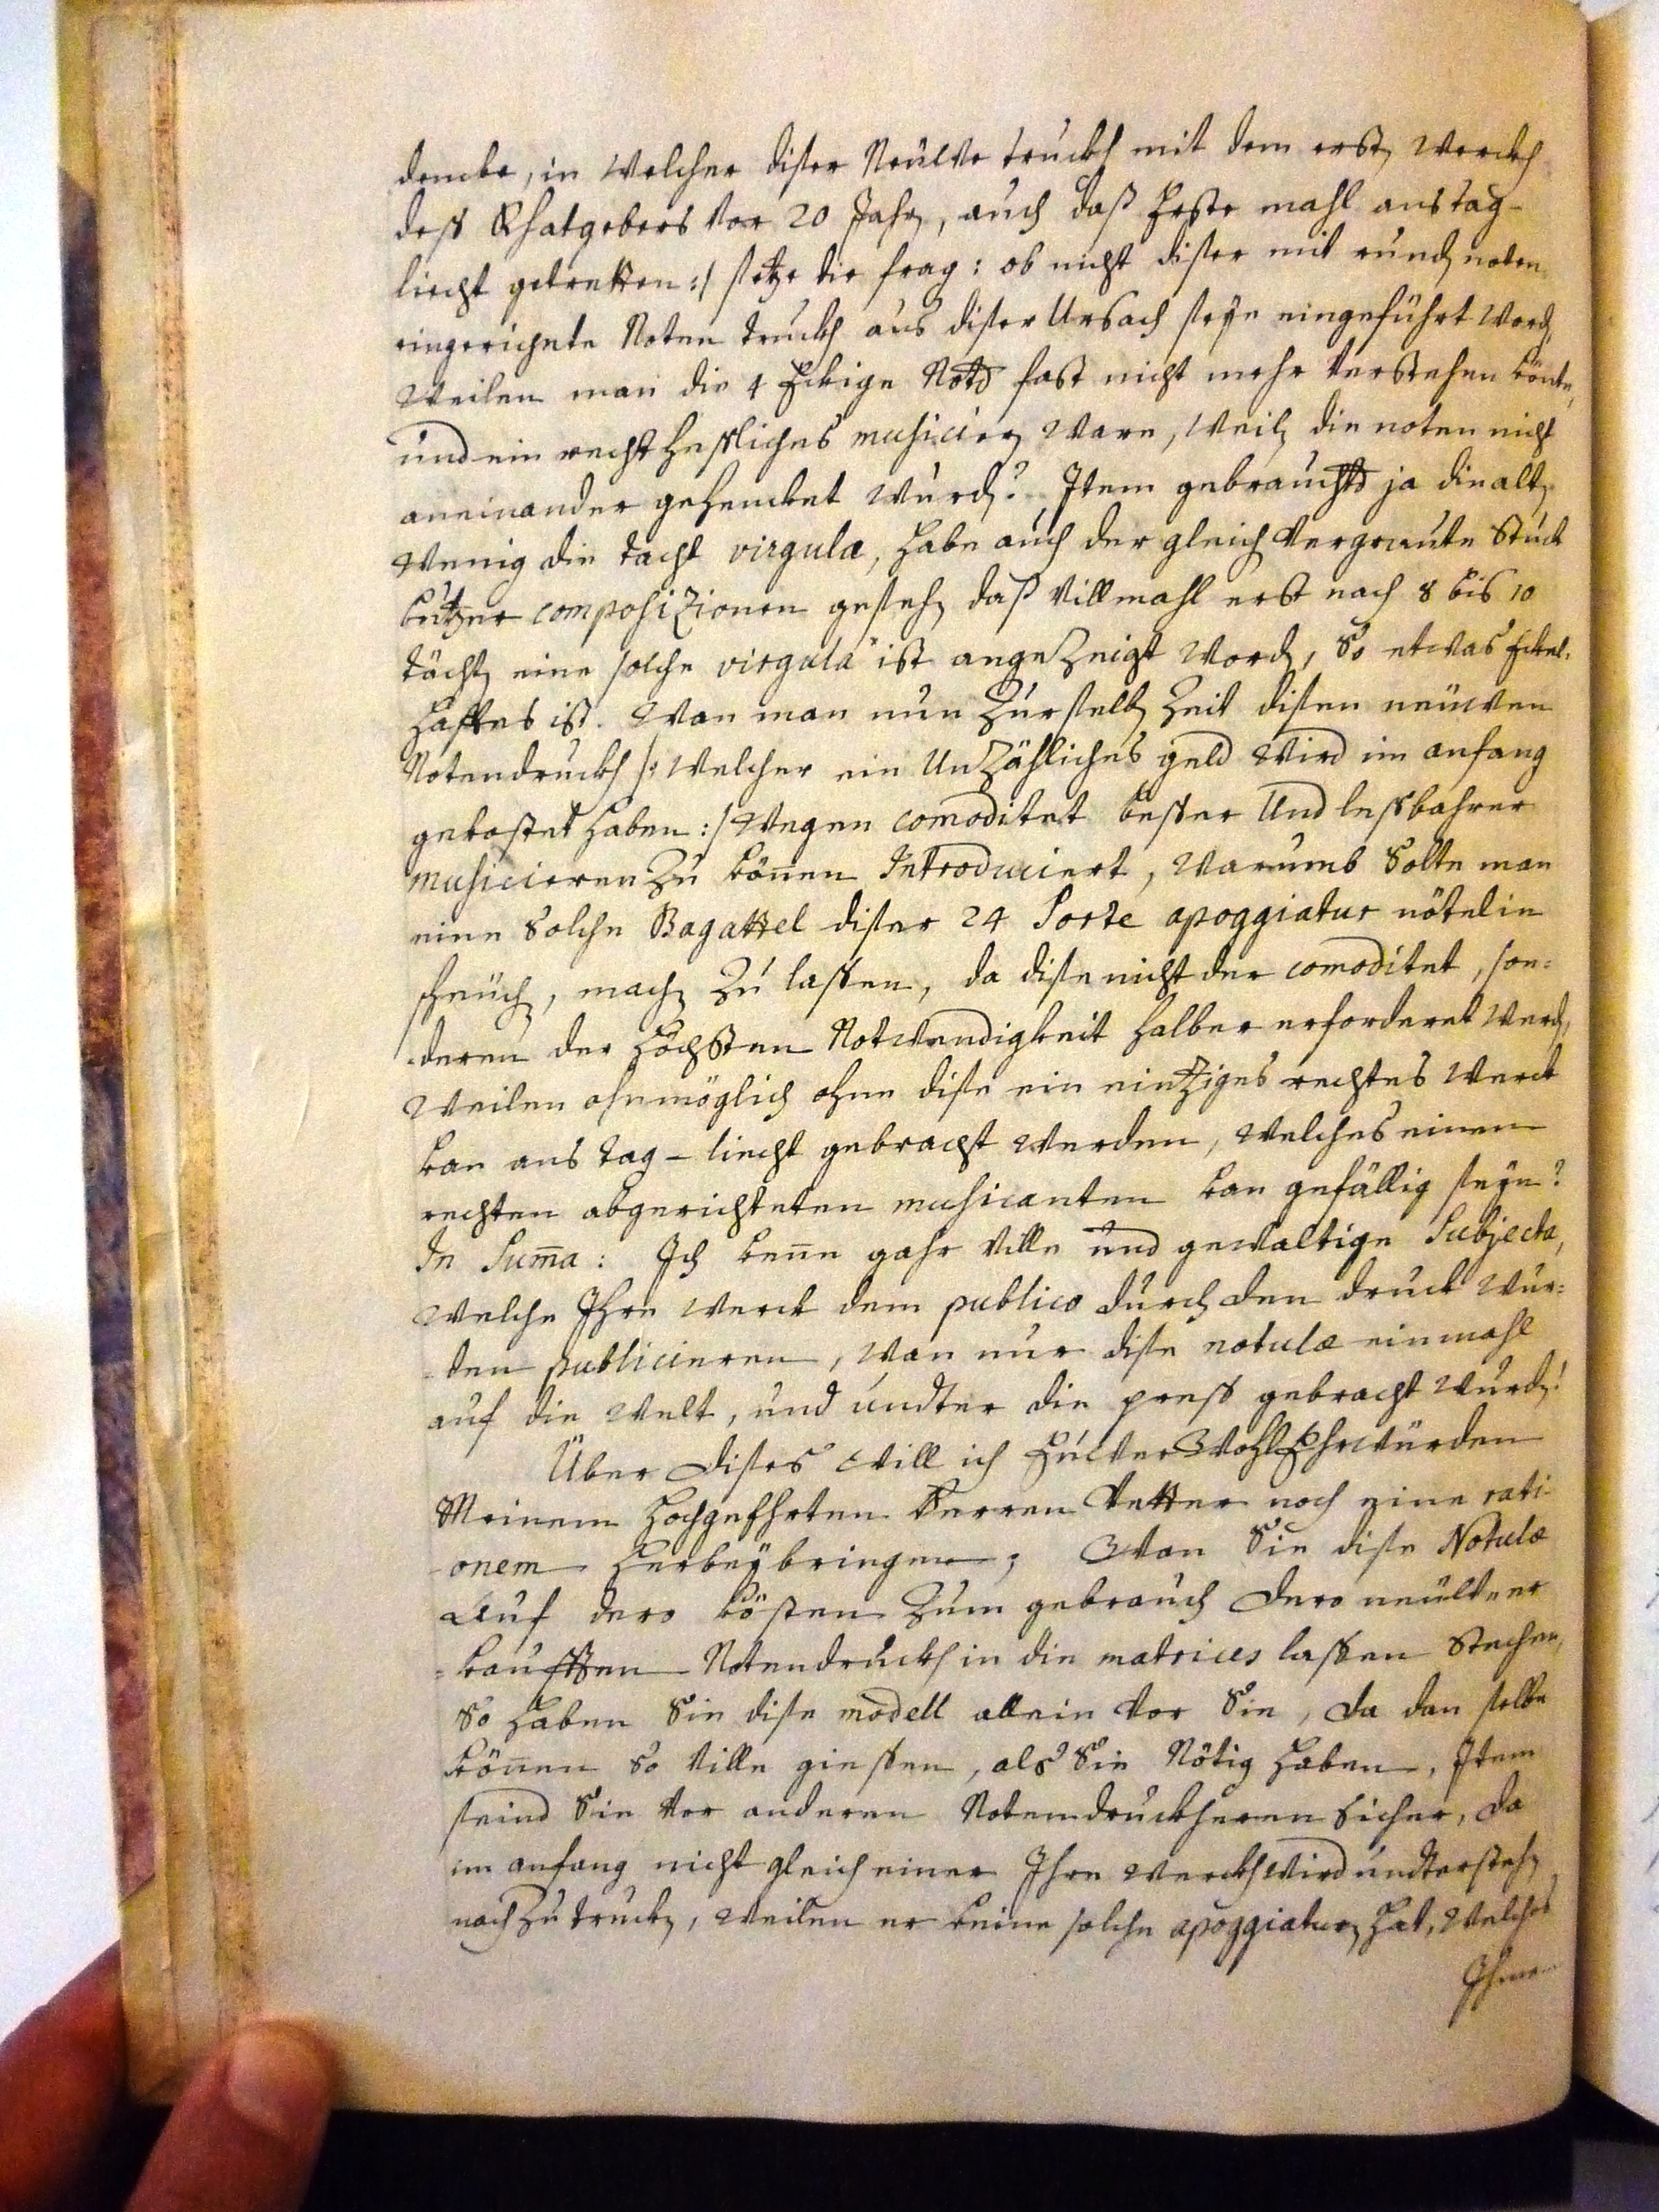 dencke, in welcher diser Neüwe truckh mit dem erst[en] werckh
dess Rhatgebers vor 20 Jahr[en], auch daß Erste mahl ans tag-
liecht getretten :/ setze die frag: ob nicht diser mit rund[en] noten
eingerichete Noten truckh aus diser Ursach seye eingeführt word[en],
Weilen man die 4 Eckige Not[en] fast nicht mehr verstehen könte,
und ein recht hessliches musicier[en] ware, weil[en] die noten nicht
aneinander gehencket wurd[en]? Item gebraucht[en] ja die alt[en]
wenig die tacht virgulæ, habe auch der gleich[en] vergraute Stuck
kützer composizionen geseh[en], daß villmahl erst nach 8 bis 10
tächt[en] eine solche virgula ist angezeigt word[en], So etwas Eckel-
hafftes ist. Wan man nun zur selb[en] Zeit disen neüwen
Notendruckh /: welcher ein Unzähliches geld wird im anfang
gekostet haben :/ wegen comoditet besser und lessbahrer
musicieren zu könen Introduciert, warumb solte man
eine solche Bagattel diser 24 Sorte apoggiatur nötelin
scheüch[en], mach[en] zu lassen, da dise nicht der comoditet, son-
deren der höchsten Notwendigkeit halber erforderet werd[en],
Weilen ohnmöglich ohne dise ein eintziges rechtes werck
kan ans tag-liecht gebracht werden, welches einem
rechten abgerichteten musicanten kan gefällig seye?
In Suma: Ich kene gahr ville und gewaltige Subjecta,
welche Ihre werck dem publico durch den druck wur-
den publicieren, wan nur dise notulæ einmahl
auf die welt, und undter die press gebracht wurd[en]!
Über dises will ich Eüwer WohlEhrwürden
Meinem hochgeehrten Herren Vetter noch eine rati-
onem herbeybringen; Wan Sie dise Notulæ
Auf dero kösten zum gebrauch dero neüw er-
kaufften Notendruckh in die matrices lassen stechen,
So haben Sie dise modell allein vor Sie, da dan selbe
könen so ville giessen, als Sie Nötig haben, Item
seind Sie vor anderen Notendruckheren sicher, da
im anfang nicht gleich einer Ihre werckh wird understeh[en]
nach zu truck[en], weilen er keine solche apoggiatur[en] hat, welches
Ihme